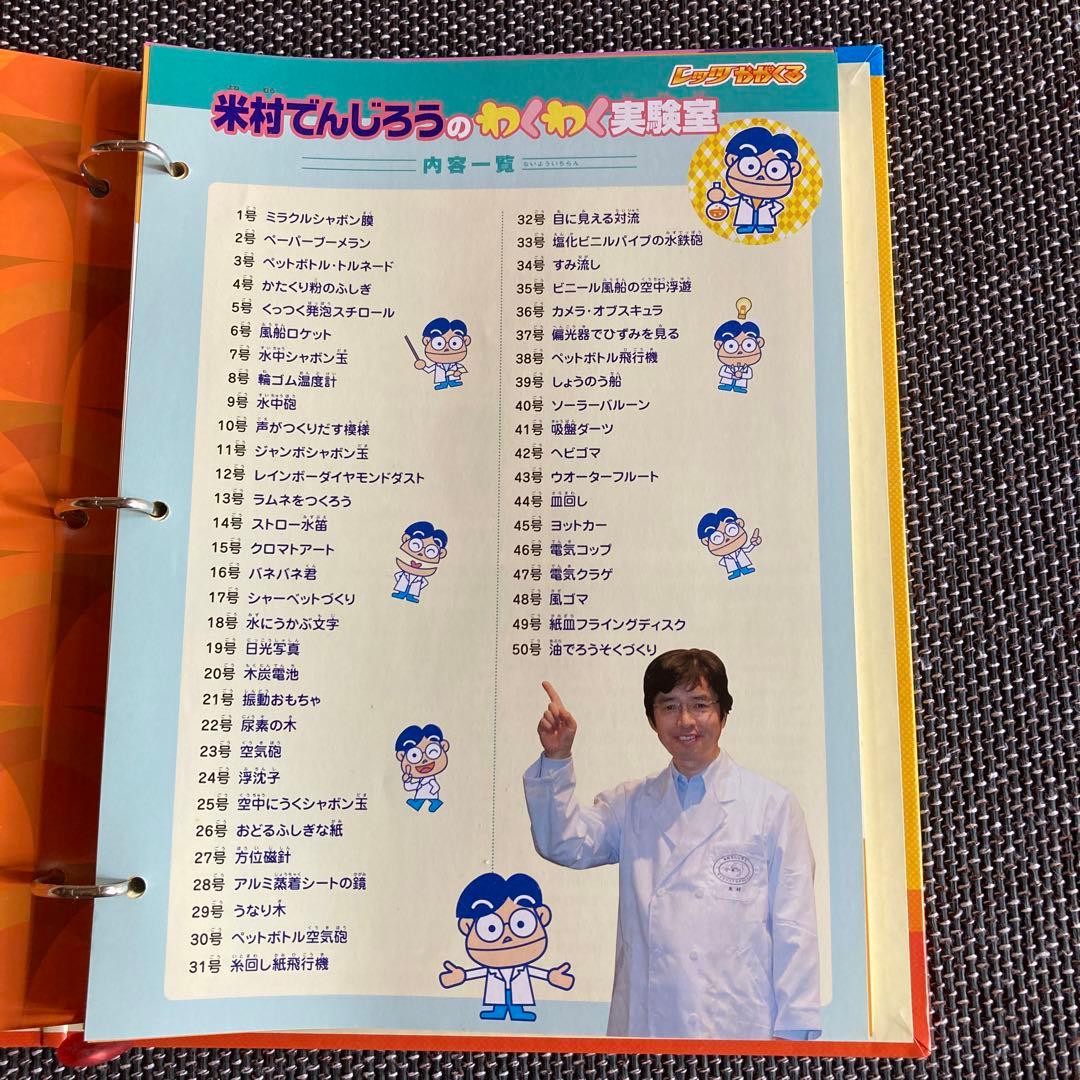 レッツかがくる
米村でんじろうのわくわく実験室
内容一覧 ないよういちらん
1号 ミラクルシャボン膜
2号 ペーパーブーメラン
3号 ペットボトル・トルネード
4号 かたくり粉のふしぎ
5号 くっつく発泡スチロール
6号 風船ロケット
7号 水中シャボン玉
8号 輪ゴム温度計
9号 水中砲
10号 声がつくりだす模様
11号 ジャンボシャボン玉
12号 レインボーダイヤモンドダスト
13号 ラムネをつくろう
14号 ストロー水笛
15号 クロマトアート
16号 バネバネ君
17号 シャーベットづくり
18号 水にうかぶ文字
19号 日光写真
20号 木炭電池
21号 振動おもちゃ
22号 尿素の木
23号 空気砲
24号 浮沈子
25号 空中にうくシャボン玉
26号 おどるふしぎな紙
27号 方位磁針
28号 アルミ蒸着シートの鏡
29号 うなり木
30号 ペットボトル空気砲
31号 糸回し紙飛行機
32号 目に見える対流
33号 塩化ビニルパイプの水鉄砲
34号 すみ流し
35号 ビニール風船の空中浮遊
36号 カメラ・オブスキュラ
37号 偏光器でひずみを見る
38号 ペットボトル飛行機
39号 しょうのう船
40号 ソーラーバルーン
41号 吸盤ダーツ
42号 ヘビゴマ
43号 ウオーターフルート
44号 皿回し
45号 ヨットカー
46号 電気コップ
47号 電気クラゲ
48号 風ゴマ
49号 紙皿フライングディスク
50号 油でろうそくづくり
米村